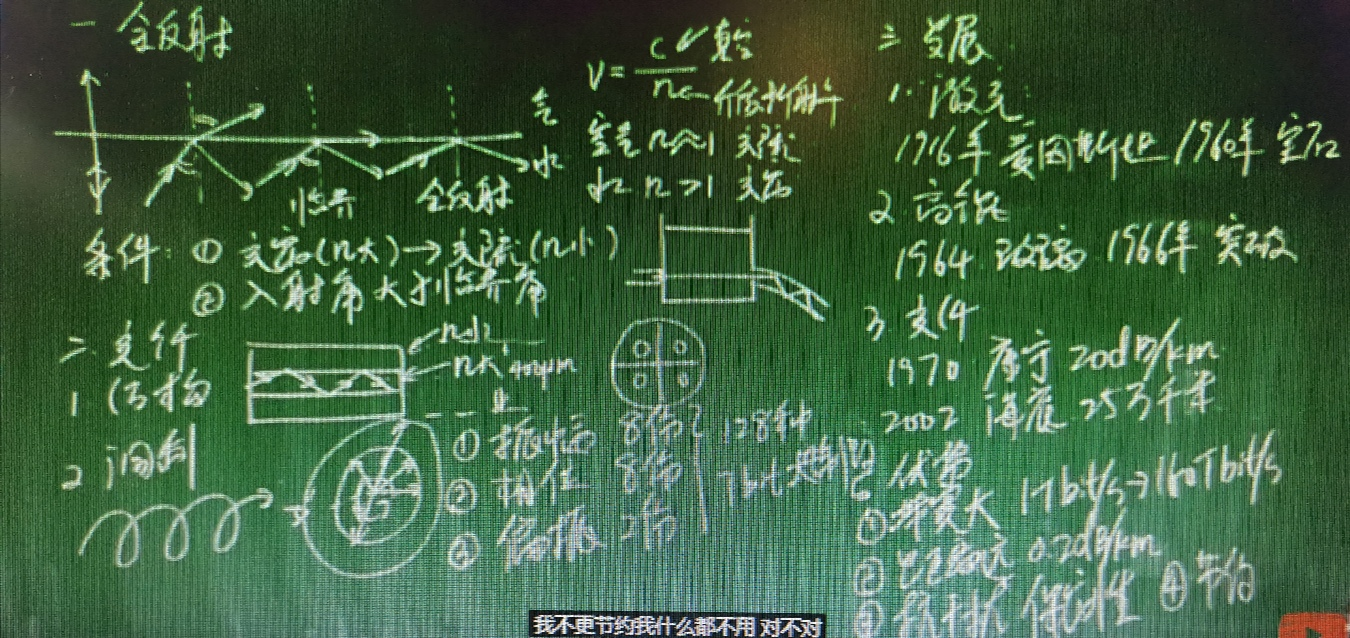 一 全反射
空
水
临界
全反射
条件: ① 光密(n大)→光疏(n小)
② 入射角大于临界角
V = c/n 真空
介质折射率
空气 n≈1 光疏
水 n>1 光密
二 光纤
1 结构
n小
n大 400μm
2 调制
① 振幅 8倍
② 相位 8倍
③ 偏振 2倍
128种
7bit
三 发展
1. 激光
1916年 爱因斯坦 1960年 宝石
2 高锟
1964 1966年 突破
3 光纤
1970 康宁 20dB/km
2002 海底 25万千米
四 优势
① 容量大 1Tbit/s→160Tbit/s
② 0.2dB/km
③ 抗干扰 保密性 ④ 节约
我不更节约我什么都不用 对不对